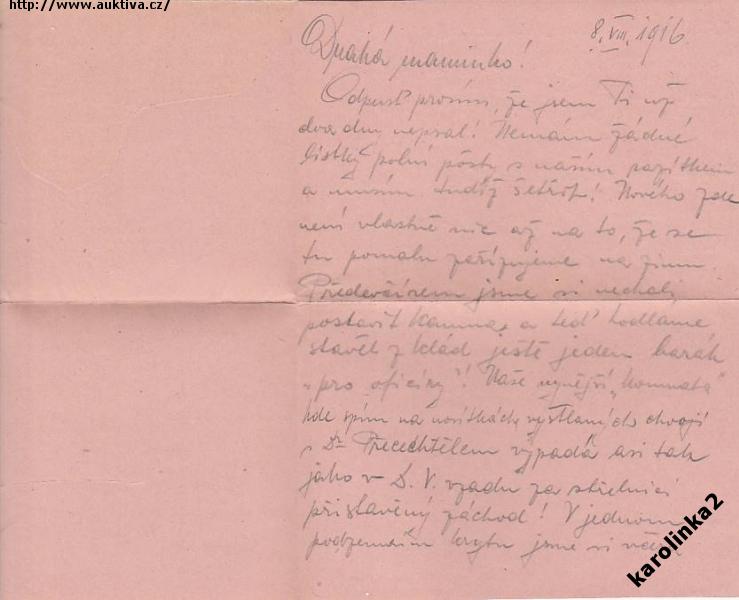 http://www.auktiva.cz/
8. VIII. 1916
Drahá maminko!
Odpusť prosím, že jsem Ti už
dva dny nepsal! Nemám žádné
lístky polní pošty s naším razítkem
a musím tudíž šetřit! Nového zde
není vlastně nic až na to, že se
tu pomalu zařizujeme na zimu.
Předevčírem jsme si nechali
postavit kamna, a teď hodláme
stavět z klád ještě jeden barák
"pro oficíry"! Naše nynější "komnata"
kde spím na nosítkách vystlaných chvojí
s Dr. Přecechtělem vypadá asi tak
jako v D. V. vzadu za střelnicí
přistavěný záchod! V jednom
podzemním krytu jsme si
karolinka2